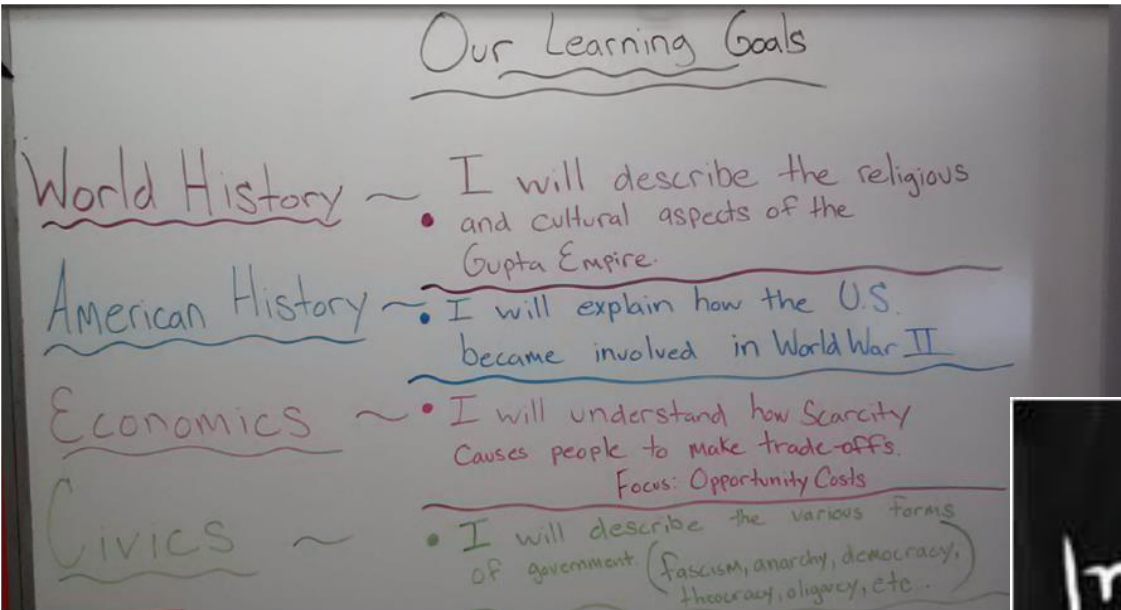 Our Learning Goals
World History ~ I will describe the religious
• and cultural aspects of the
Gupta Empire.
American History ~ • I will explain how the U.S.
became involved in World War II
Economics ~ • I will understand how Scarcity
Causes people to make trade-offs.
Focus: Opportunity Costs
Civics ~ • I will describe the various forms
of government. (fascism, anarchy, democracy,
theocracy, oligarcy, etc...)